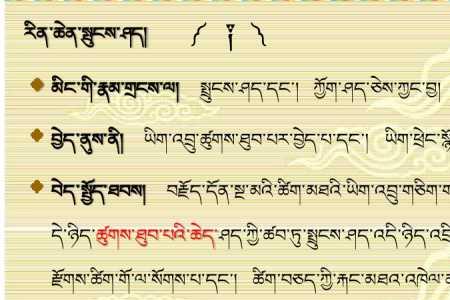 རིན་ཆེན་སྤུངས་ཤད། ༼ ༑ ༽
མིང་གི་རྣམ་གྲངས་ལ། སྤུངས་ཤད་དང་། ཀྱོག་ཤད་ཅེས་ཀྱང་བྱ།
བྱེད་ནུས་ནི། ཡིག་འབྲུ་ཚུགས་ཐུབ་པར་བྱེད་པ་དང་། ཡིག་ཕྲེང་
བེད་སྤྱོད་ཐབས། བརྗོད་དོན་སྔ་མའི་ཚིག་མཐའི་ཡིག་འབྲུ་གཅིག་
དེ་ཉིད་ཚུགས་ཐུབ་པའི་ཆེད་ཤད་ཀྱི་ཚབ་ཏུ་སྤུངས་ཤད་འདི་ཉིད་
རྫོགས་ཚིག་གོ་ལ་སོགས་པ་དང་། ཚིག་བཅད་ཀྱི་རྐང་མཐའ་